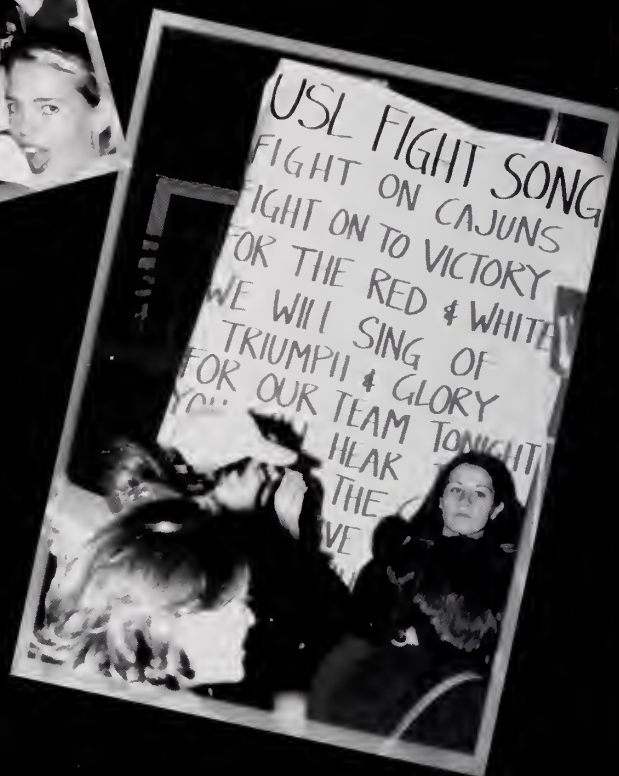 USL FIGHT SONG
FIGHT ON CAJUNS
FIGHT ON TO VICTORY
FOR THE RED & WHITE
WE WILL SING OF
TRIUMPH & GLORY
FOR OUR TEAM TONIGHT
HEAR
THE